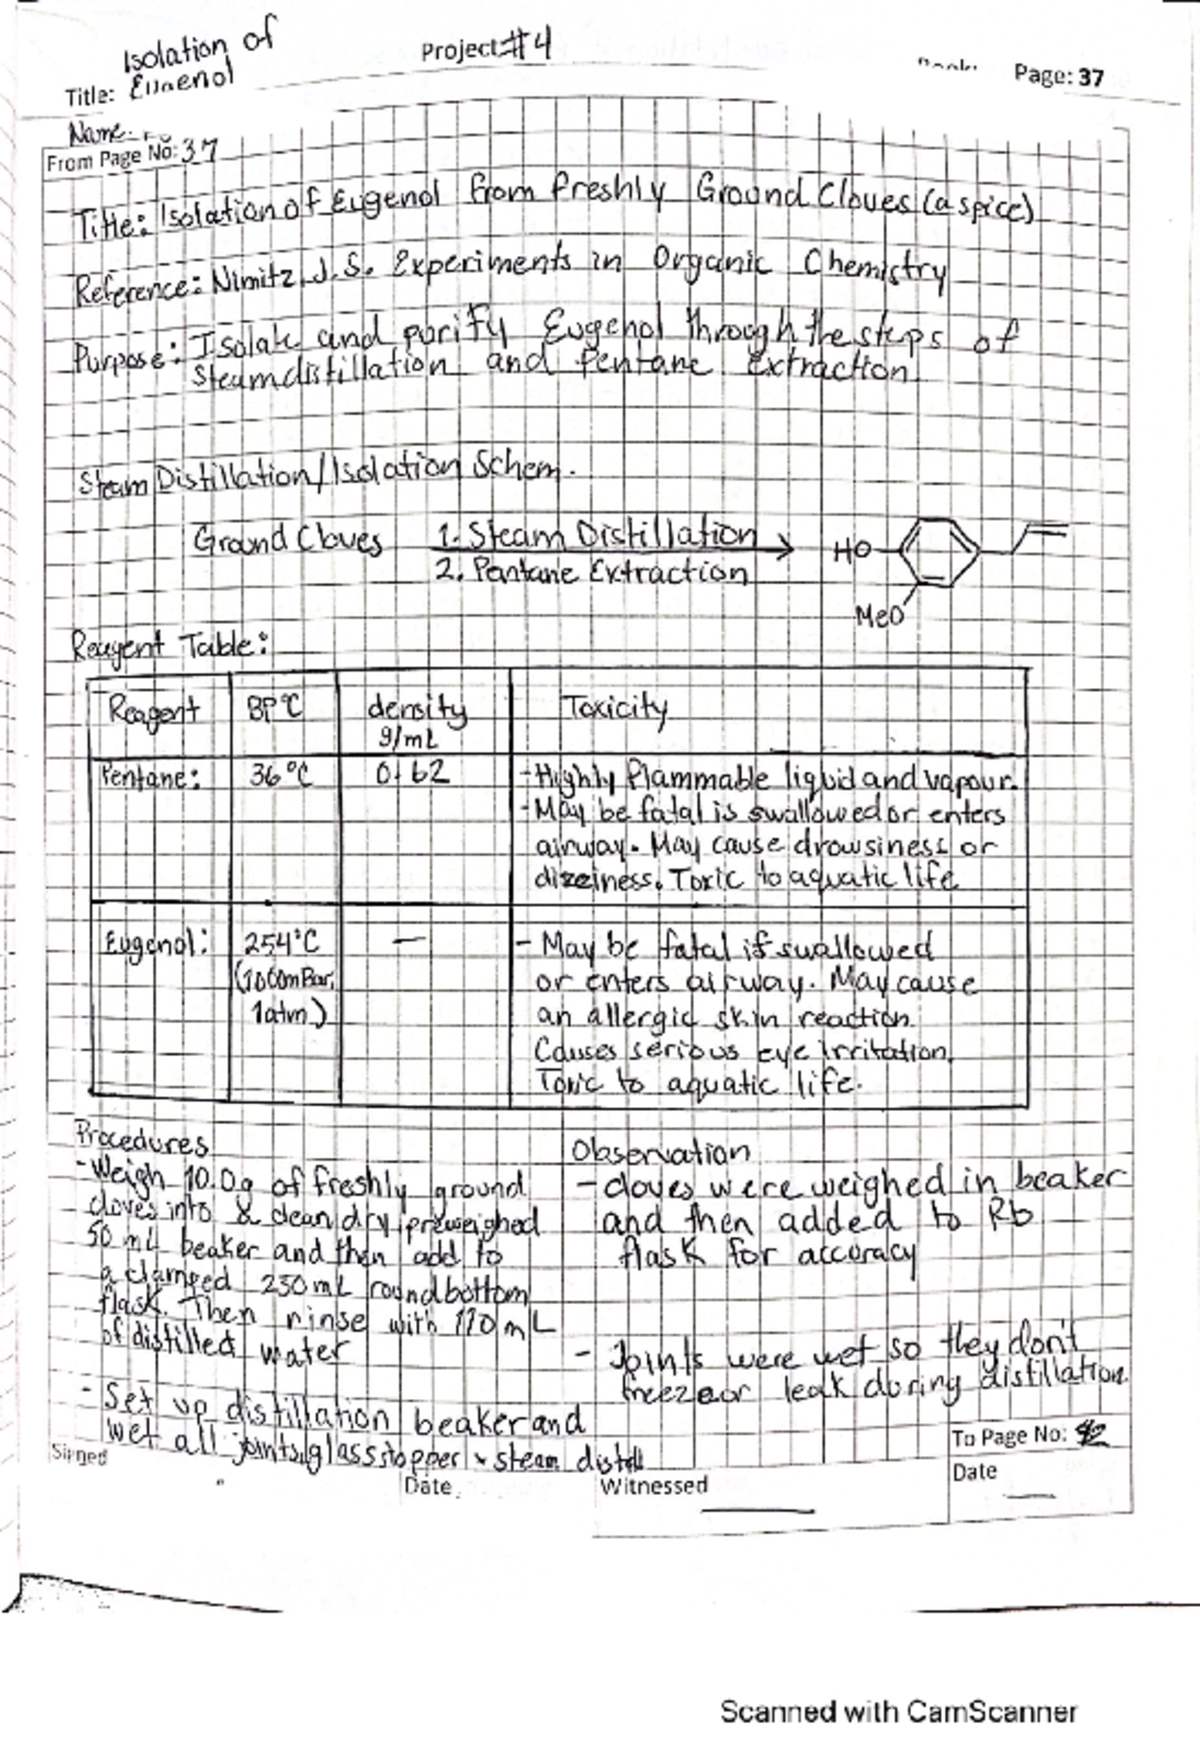 Isolation of
Project #4
Page: 37
Title: Eugenol
Name:
From Page No: 37
Title: Isolation of Eugenol from freshly Ground Cloves (a spice)
Reference: Nimitz, J. S. Experiments in Organic Chemistry
Purpose: Isolate and purify Eugenol through the steps of
Steam distillation and Pentane Extraction
Steam Distillation/Isolation Schem.
Ground Cloves
1. Steam Distillation
2. Pentane Extraction
HO
MeO
Reagent Table:
Reagent BP°C density g/mL Toxicity
Pentane: 36°C 0.62 -Highly flammable liquid and vapour.
-May be fatal is swallowed or enters
airway. May cause drowsiness or
dizziness. Toxic to aquatic life
Eugenol: 254°C — - May be fatal if swallowed
(1000mBar, or enters airway. May cause
1atm) an allergic skin reaction.
Causes serious eye irritation.
Toxic to aquatic life.
Procedures
-Weigh 10.0g of freshly ground
cloves into & clean dry preweighed
50 mL beaker and then add to
a clamped 250 mL round bottom
flask. Then rinse with 110 mL
of distilled water
- Set up distillation beaker and
wet all joints, glass stopper & steam distill
Observation
- cloves were weighed in beaker
and then added to Rb
flask for accuracy
- Joints were wet so they don't
freeze or leak during distillation.
Signed
Date
Witnessed
To Page No:
Date
Scanned with CamScanner